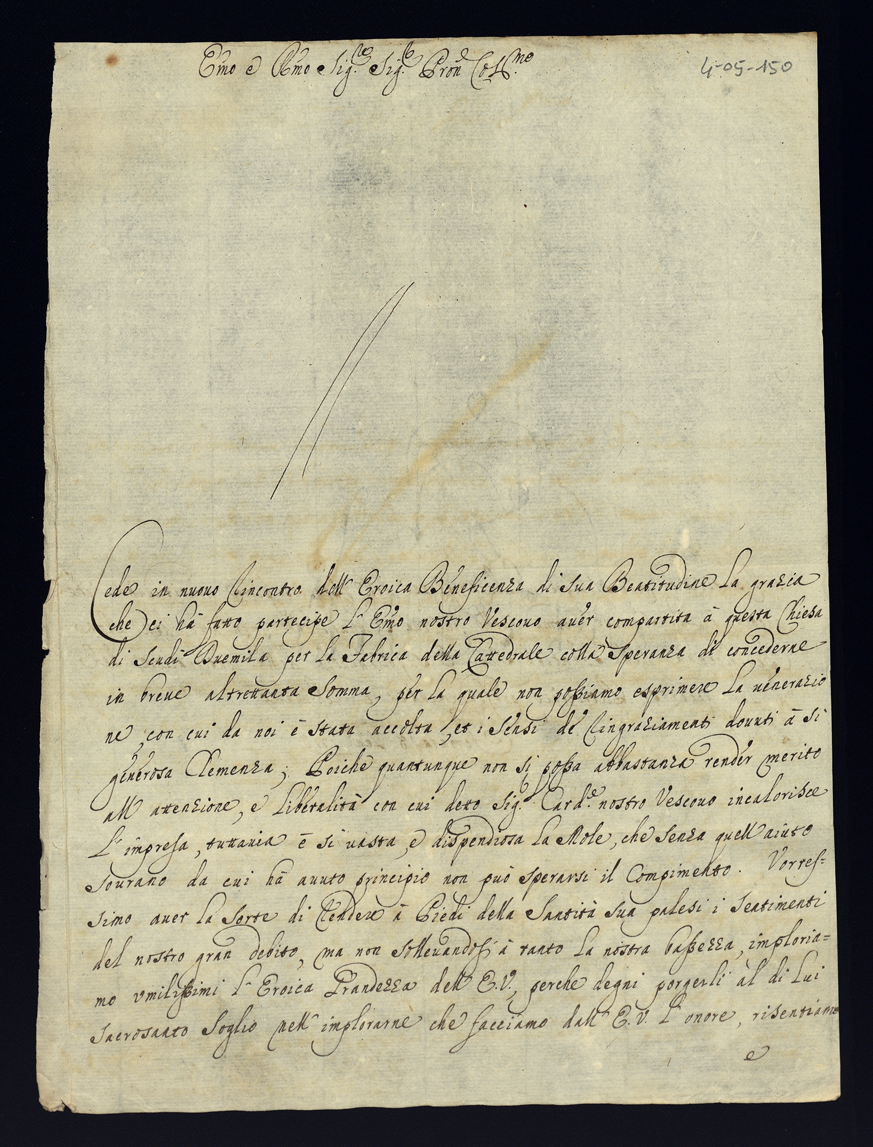 Emo e Rmo Sig.re Sig.r Pron Col.mo
4-05-150
Cede in nuouo Rincontro dell' Eroica Beneficenza di Sua Beatitudine la grazia
che ci hà fatto partecipe l' Emo nostro Vescouo auer compartita à questa Chiesa
di Scudi Duemila per la Fabrica della Cattedrale colla Speranza di concederne
in breue altrettanta Somma, per la quale non possiamo esprimere la uenerazio
ne, con cui da noi è stata accolta, et i Sensi de' Ringraziamenti douuti à si
generosa Clemenza; Poiche quantunque non si possa abbastanza render merito
all' attenzione, e liberalità con cui detto Sig.r Card.e nostro Vescouo incalorisce
l' impresa, tuttauia è si uasta, e dispendiosa la Mole, che senza quell' aiuto
Sourano da cui hà auuto principio non può sperarsi il Compimento. Vorres-
simo auer la Sorte di Render à Piedi della Santità Sua palesi i Sentimenti
del nostro gran debito, ma non solleuandosi à tanto la nostra bassezza, imploria=
mo vmilissimi l' Eroica Grandezza dell' E.V., perche degni porgerli al di Lui
Sacrosanto Soglio nell' implorarne che facciamo dall' E.V. l' onore, risentiamo
e